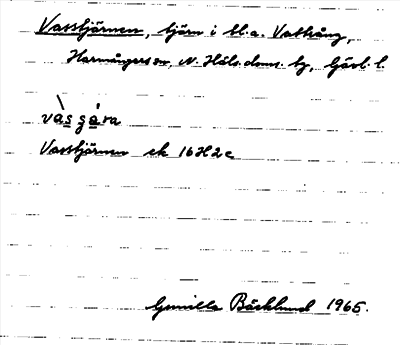 Vasstjärnen, tjärn i bl.a. Vattrång,
Harmångers sn, N. Häls. doms. tg, Gävl. l.
vàs̲ g̲á̲ra
Vasstjärnen ek 16H2c
Gunilla Bäcklund 1965.